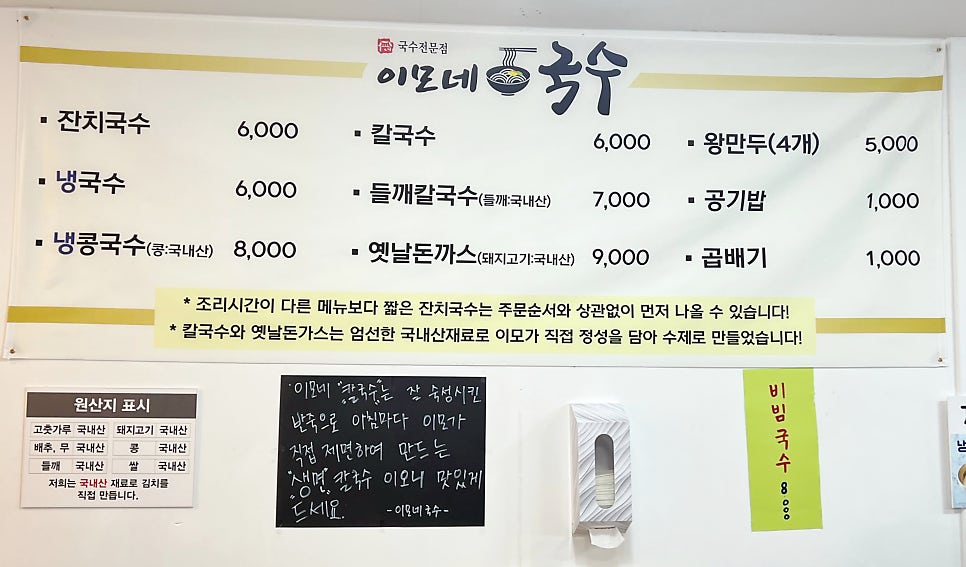 국수전문점
이모네 국수
▪ 잔치국수 6,000
▪ 냉국수 6,000
▪ 냉콩국수(콩:국내산) 8,000
▪ 칼국수 6,000
▪ 들깨칼국수(들깨:국내산) 7,000
▪ 옛날돈까스(돼지고기:국내산) 9,000
▪ 왕만두(4개) 5,000
▪ 공기밥 1,000
▪ 곱배기 1,000
* 조리시간이 다른 메뉴보다 짧은 잔치국수는 주문순서와 상관없이 먼저 나올 수 있습니다!
* 칼국수와 옛날돈가스는 엄선한 국내산재료로 이모가 직접 정성을 담아 수제로 만들었습니다!
원산지 표시
고춧가루 국내산 돼지고기 국내산
배추, 무 국내산 콩 국내산
들깨 국내산 쌀 국내산
저희는 국내산 재료로 김치를
직접 만듭니다.
이모네 "칼국수"는 잘 숙성시킨
반죽으로 아침마다 이모가
직접 제면하여 만드는
"생면" 칼국수 이오니 맛있게
드세요. -이모네국수-
비빔국수 8000
냉